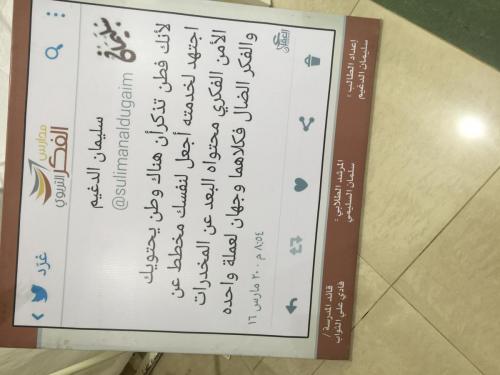 غرد
مدارس
الفكر
التربوي
سليمان الدغيم
@sulimanaldugaim
لأنك فطن تذكرأن هناك وطن يحتويك
اجتهد لخدمته أجعل لنفسك مخطط عن
الأمن الفكري محتواه البعد عن المخدرات
والفكر الضال فكلاهما وجهان لعملة واحده
٨:٥٤ م ٢٠٠ مارس ١٦
إعداد الطالب :
سليمان الدغيم
المرشد الطلابي :
سلمان السليمي
قائد المدرسة /
فادي علي التواب